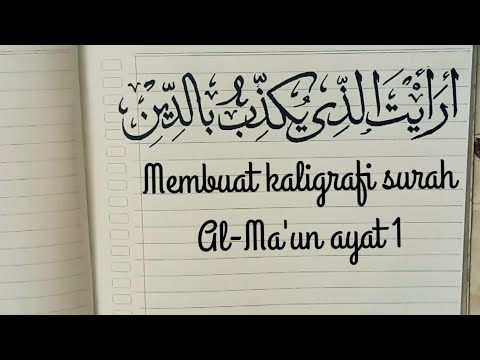 أَرَأَيْتَ الَّذِي يُكَذِّبُ بِالدِّينِ
Membuat kaligrafi surah
Al-Ma'un ayat 1